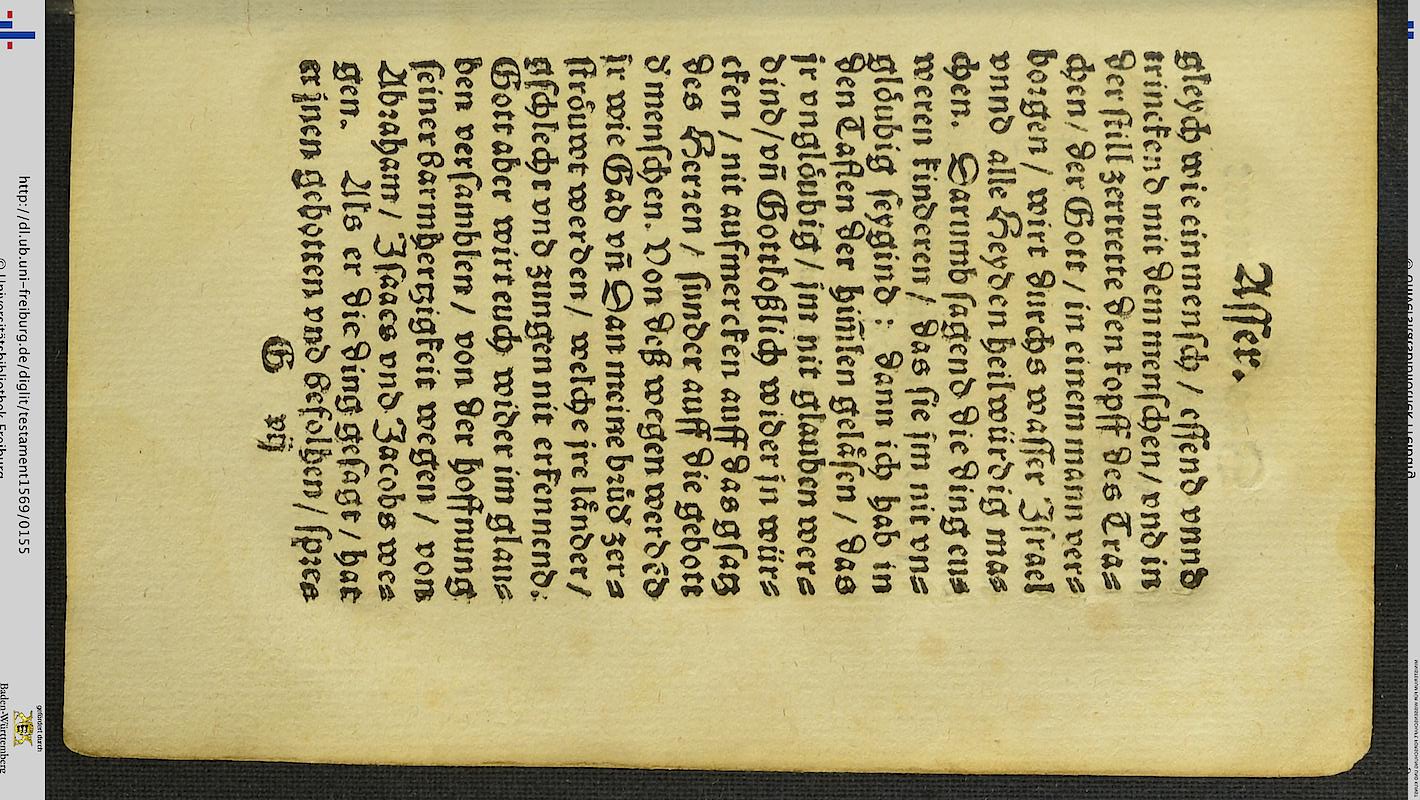 Asser.
gleych wie ein mensch / essend vnnd
trinckend mit dem menschen / vnd in
der still zertrette den kopff des Tra=
chen / der Gott / in einem mann ver=
borgen / wirt durchs wasser Israel
vnnd alle Heyden heilwürdig ma=
chen. Darumb sagend die ding eu=
weren kinderen / das sie jm nit vn=
glöubig seygind: dann ich hab in
den Taflen der him̃len geläsen / das
jr vnglöubig / jm nit glauben wer=
dind / vñ Gottloßlich wider jn wür=
cken / nit aufmercken auff das gsatz
des Herren / sunder auff die gebott
d menschen. Von deß wegen werdẽd
jr wie Gad vñ Dan meine brůd zer=
ströuwt werden / welche jre länder /
gschlecht vnd zungen nit erkennend:
Gott aber wirt euch wider im glau=
ben versamblen / von der hoffnung
seiner barmhertzigkeit wegen / von
Abraham / Isaacs vnd Jacobs we=
gen. Als er die ding gesagt / hat
er jnen gebotten vnd befolhen / spre=
G vij
http://dl.ub.uni-freiburg.de/diglit/testament1569/0155
© Universitätsbibliothek Freiburg
gefördert durch
Baden-Württemberg